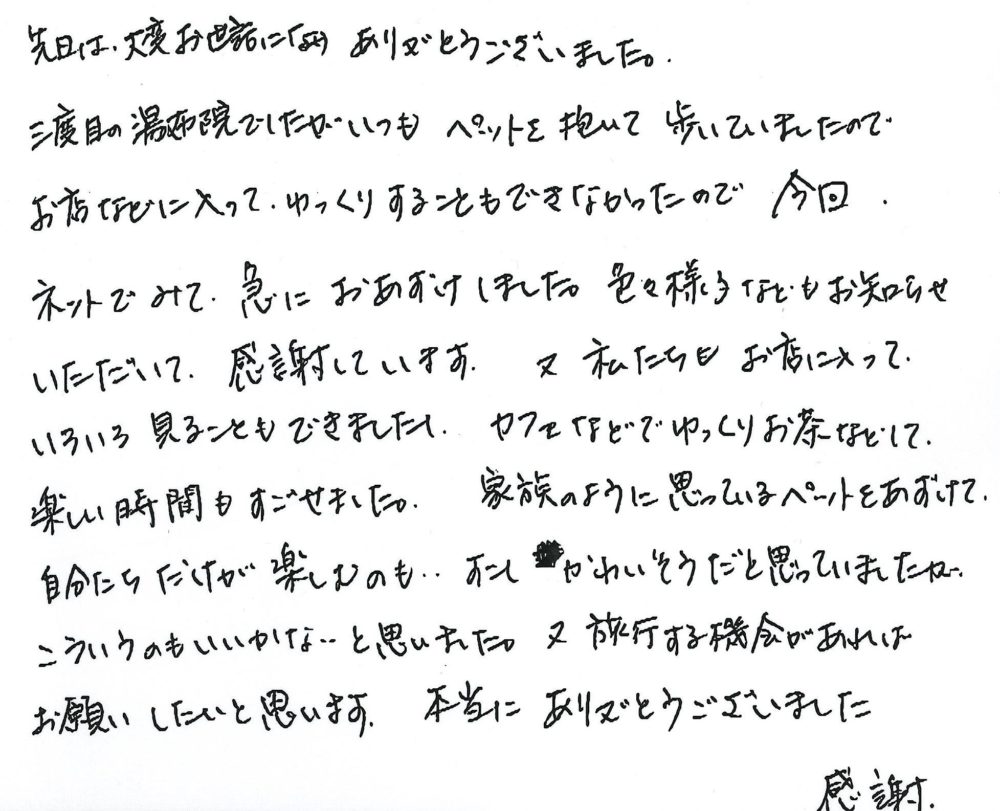 先日は、大変お世話になり ありがとうございました。
三度目の湯布院でしたが、いつも ペットを 抱いて 歩いていましたので
お店などに入って、ゆっくりすることもできなかったので 今回、
ネットでみて、急に おあずけしました。色々様子なども お知らせ
いただいて、感謝しています。 又 私たちも お店に入って、
いろいろ 見ることもできましたし、 カフェなどでゆっくりお茶などして、
楽しい時間も すごせました。 家族のように思っているペットをあずけて、
自分たち だけが 楽しむのも‥ すこし かわいそうだと思っていましたが、
こういうのもいいかな‥と思いました。又 旅行する機会があれば
お願い したいと思います。 本当に ありがとうございました
感謝.